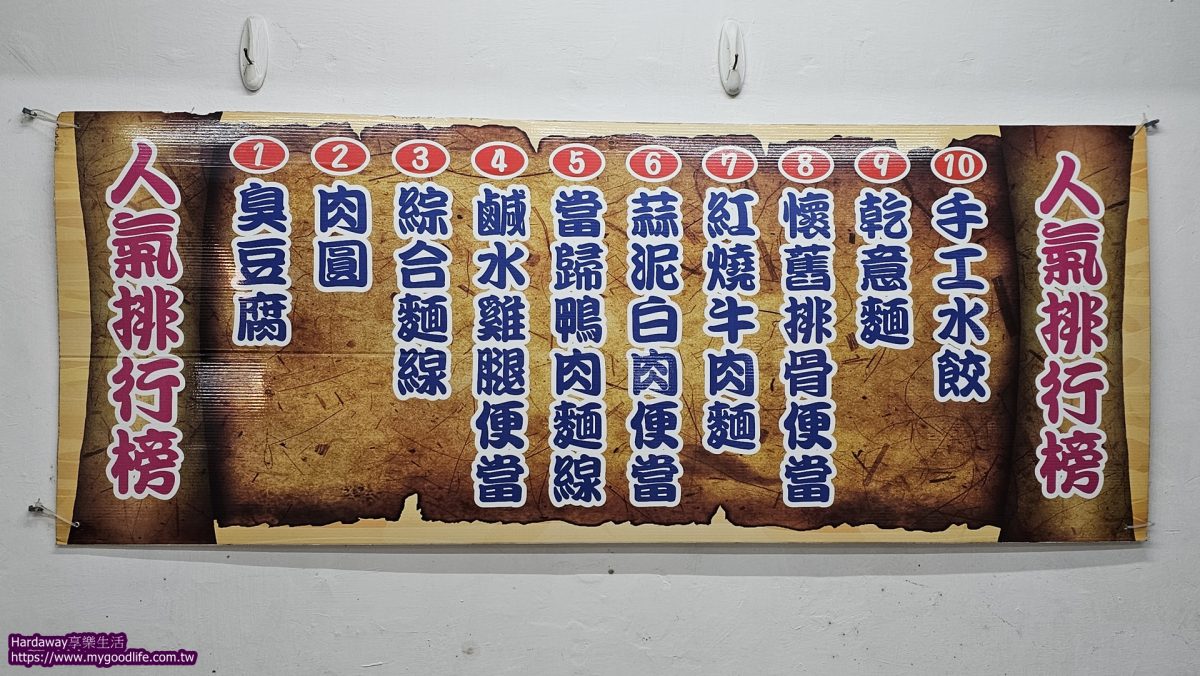 人氣排行榜
1 臭豆腐
2 肉圓
3 綜合麵線
4 鹹水雞腿便當
5 當歸鴨肉麵線
6 蒜泥白肉便當
7 紅燒牛肉麵
8 懷舊排骨便當
9 乾意麵
10 手工水餃
人氣排行榜
Hardaway享樂生活
https://www.mygoodlife.com.tw